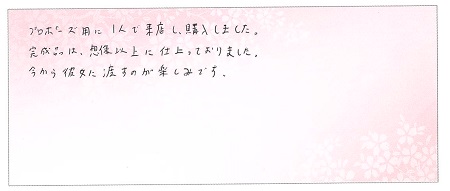 プロポーズ用に1人で来店し、購入しました。
完成品は、想像以上に仕上っておりました。
今から彼女に渡すのが楽しみです。